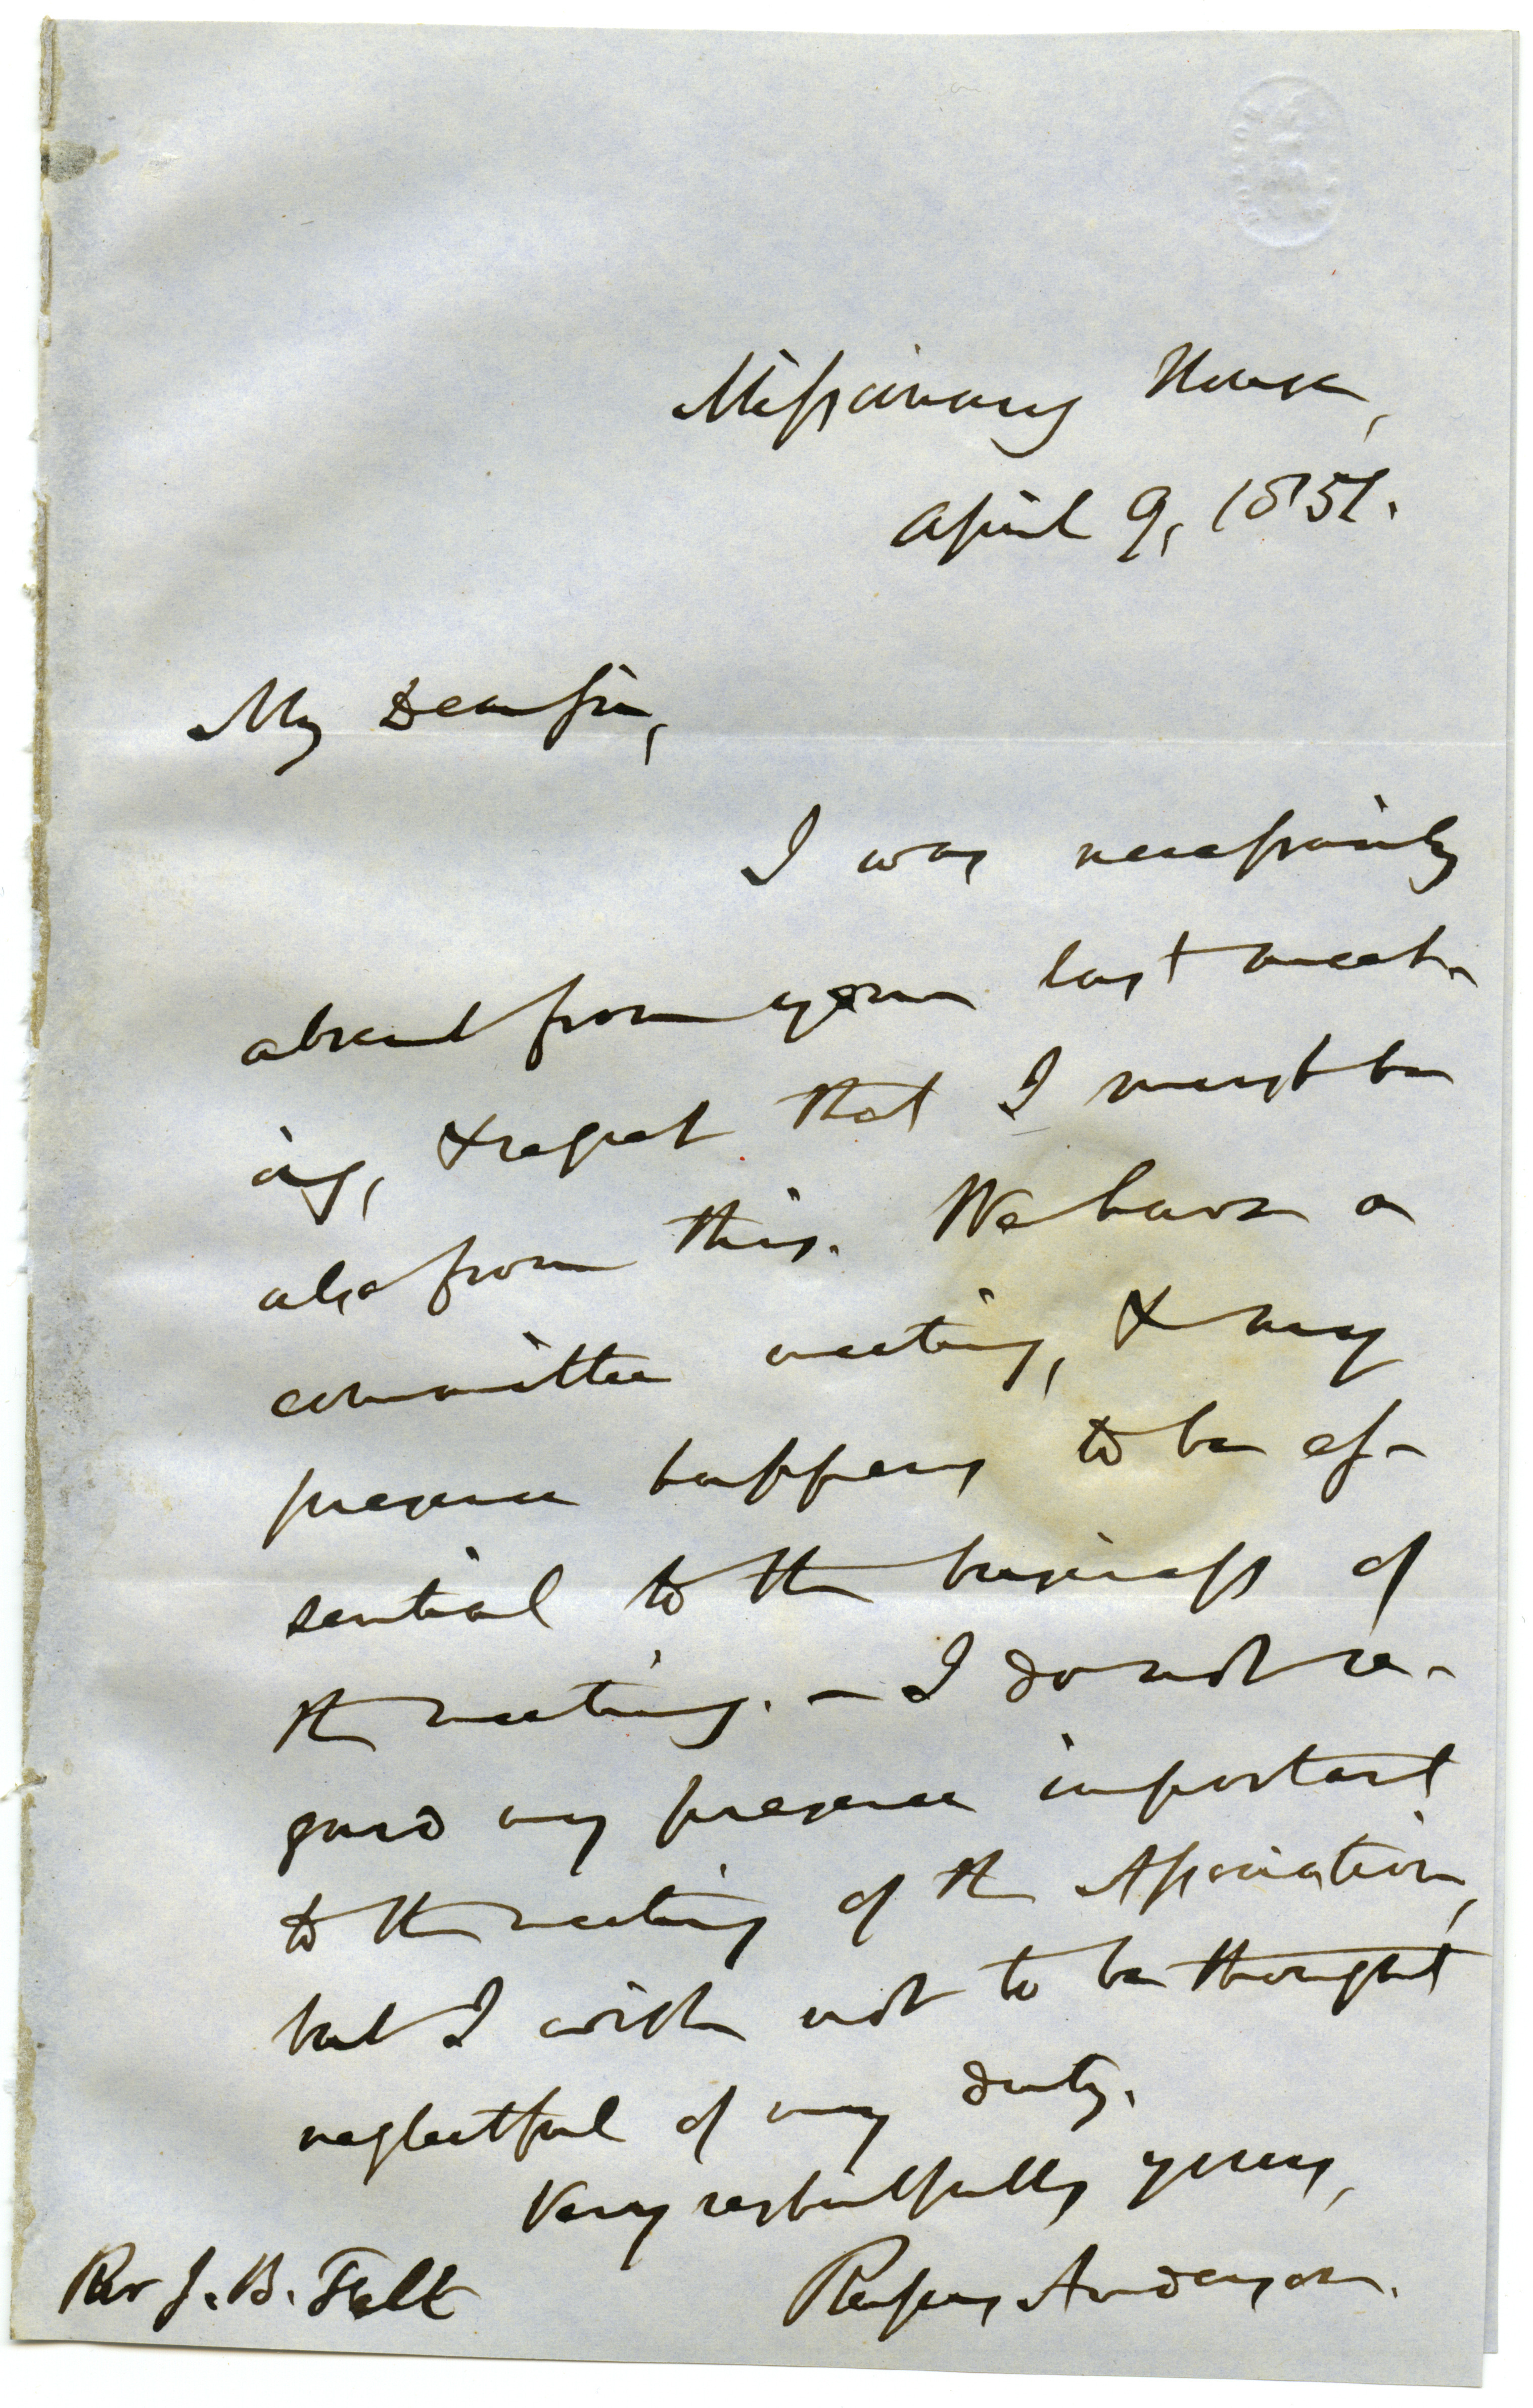 Missionary House,
April 9, 1851.
My Dear Sir,
I was necessarily
absent from your last meet-
ing, & regret that I must be
also from this. We have a
committee meeting, & my
presence happens to be es-
sential to the business of
the meeting. – I do not re-
gard my presence important
to the meeting of the Association,
but I wish not to be thought
neglectful of my duty.
Very respectfully yours,
Rufus Anderson.
Rev J. B. Felt